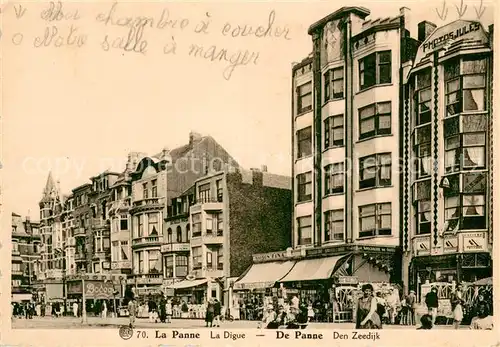 Ma chambre à coucher
Notre salle à manger
PHOTOS JULES
70. La Panne La Digue — De Panne Den Zeedijk